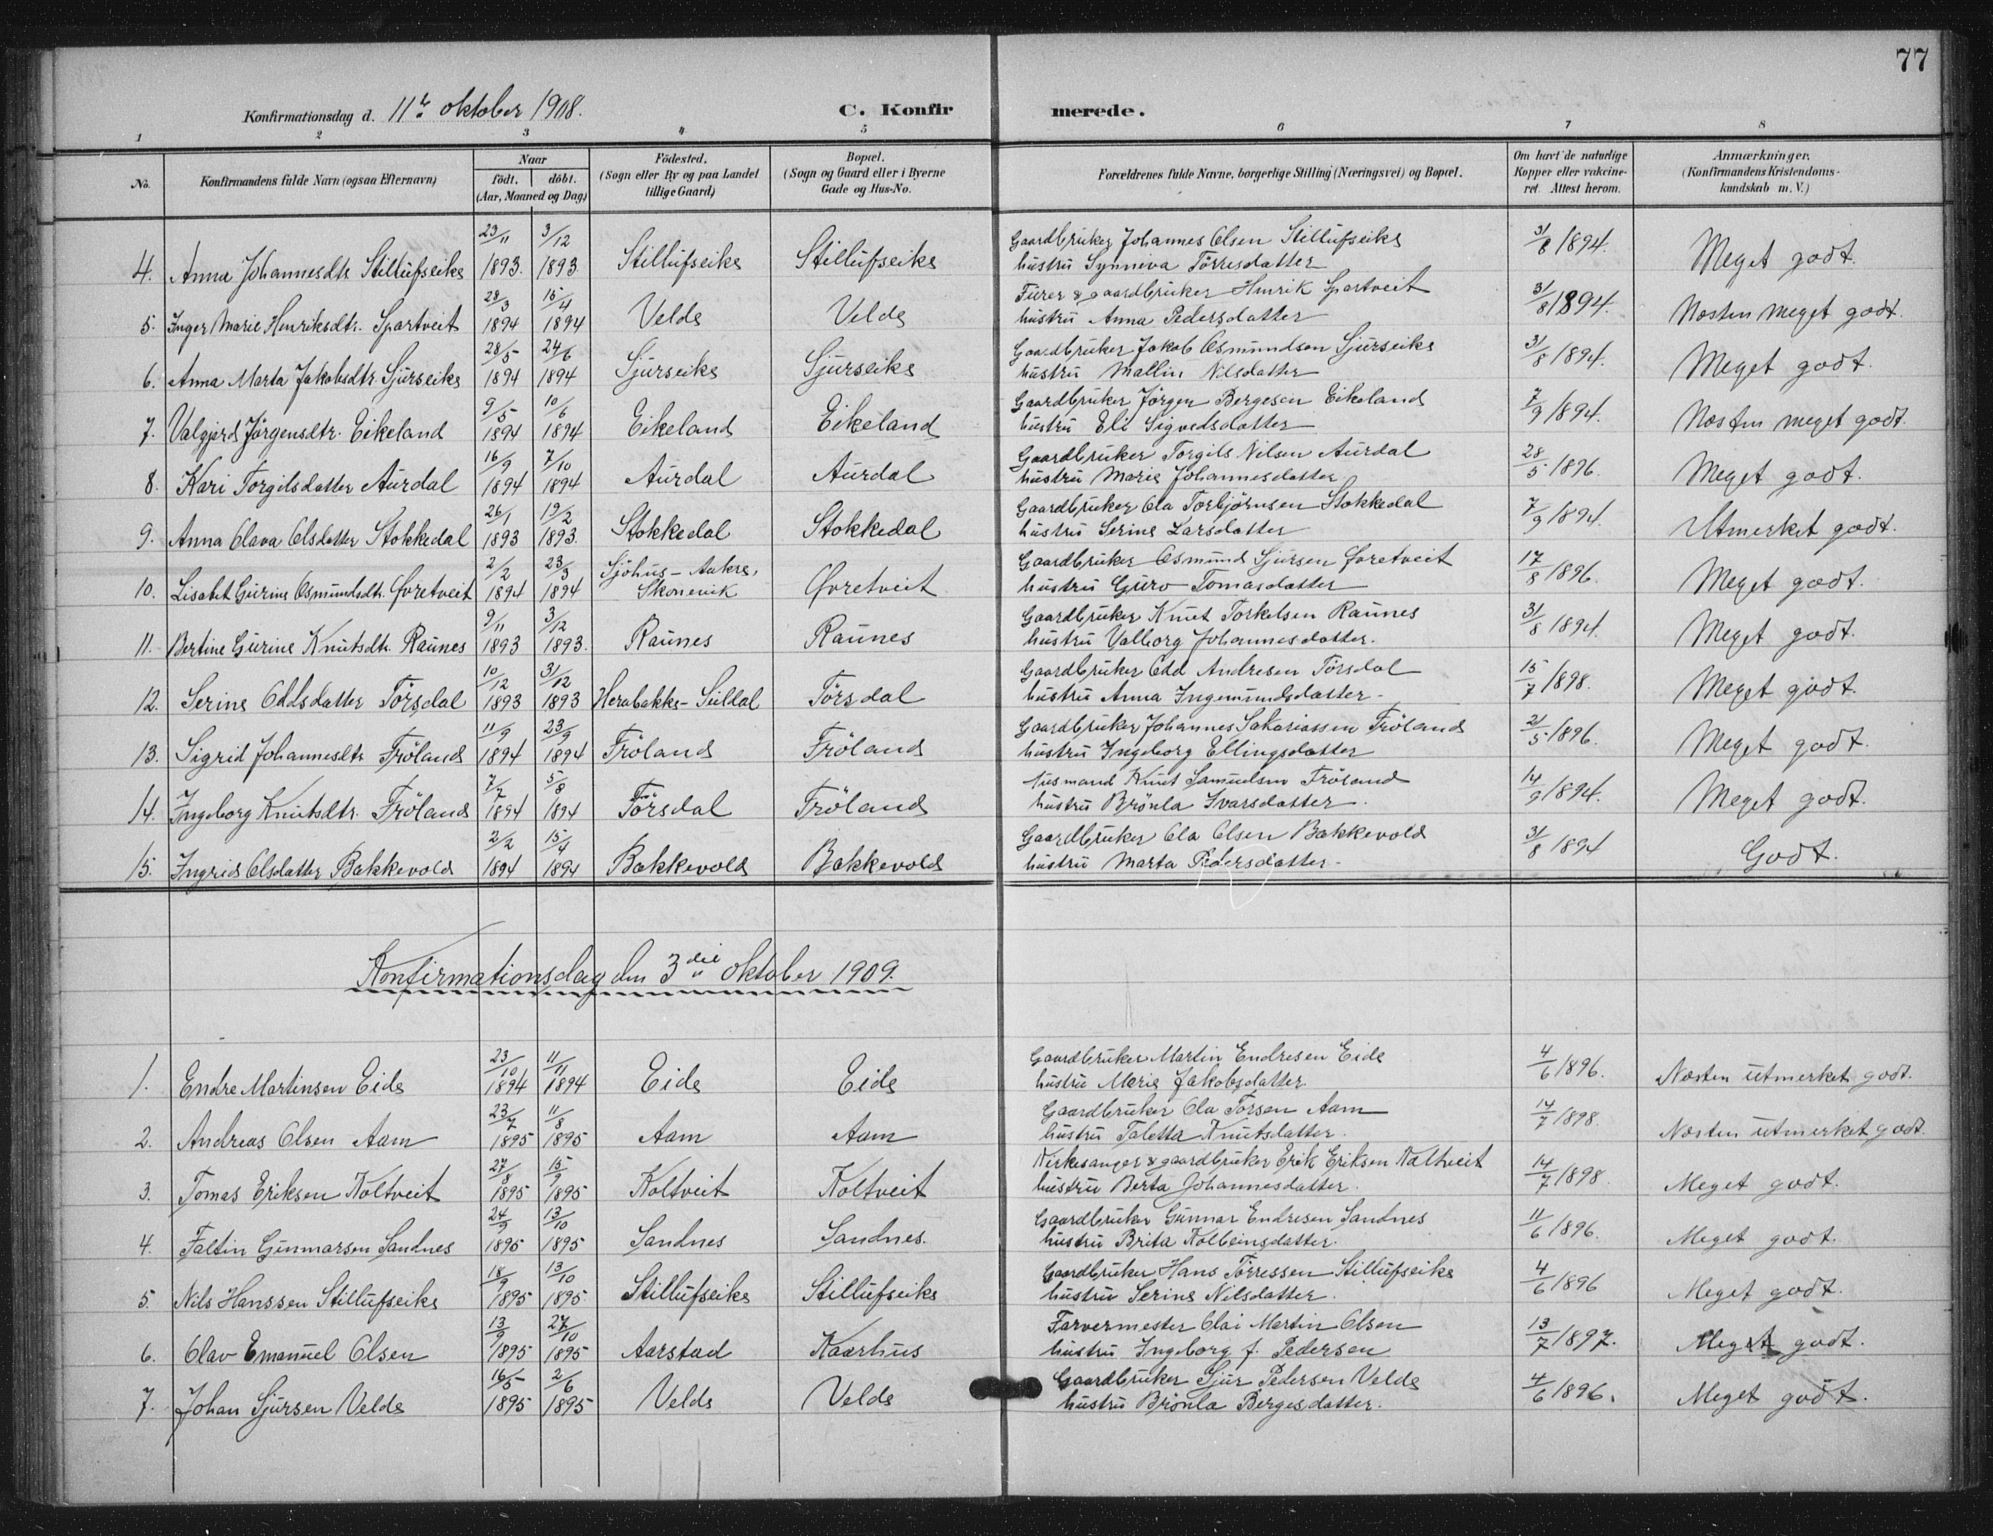 77
Konfirmationsdag d. 11te oktober 1908.
C. Konfirmerede.
1 2 3 4 5 6 7 8
No. | Konfirmandens fulde Navn (ogsaa Efternavn) | Naar födt. döbt. (Aar, Maaned og Dag) | Födested. (Sogn eller By og paa Landet tillige Gaard) | Bopæl. (Sogn og Gaard eller i Byerne Gade og Hus-No. | Forældrenes fulde Navne, borgerlige Stilling (Næringsvei) og Bopæl. | Om havt de naturlige Kopper eller vakcineret. Attest herom. | Anmærkninger. (Konfirmandens Kristendomskundskab m. V.)
4. Anna Johannesdtr Stillufseike 23/11 1893. 3/12 1893 Stillufseike Stillufseike Gaardbruker Johannes Olsen Stillufseike hustru Synneva Törresdatter 31/8 1894. Meget godt.
5. Inger Marie Henriksdtr. Spartveit 28/3 1894 15/4 1894 Velde Velde Furer & gaardbruker Henrik Spartveit hustru Anna Pedersdatter 31/8 1894. Næsten meget godt.
6. Anna Marta Jakobsdtr. Sjurseike 28/5 1894 24/6 1894 Sjurseike Sjurseike Gaardbruker Jakob Osmundsen Sjurseike hustru Mallin Nilsdatter 31/8 1894. Meget godt.
7. Valgjerd Jörgensdtr. Eikeland 9/5 1894 10/6 1894 Eikeland Eikeland Gaardbruker Jörgen Bergesen Eikeland hustru Eli Sigvedsdatter 7/9 1894. Næsten meget godt.
8. Kari Torgilsdatter Aurdal 16/9 1894 7/10 1894 Aurdal Aurdal Gaardbruker Torgils Nilsen Aurdal hustru Marie Johannesdatter 28/5 1896. Meget godt.
9. Anna Olava Olsdatter Stokkedal 26/1 1893 19/2 1893. Stokkedal Stokkedal Gaardbruker Ola Torbjörnsen Stokkedal hustru Serine Larsdatter 7/9 1894. Utmerket godt.
10. Lisabet Gurine Osmundsdtr. Øvretveit 2/2 1894 23/3 1894 Sjöhus - Aakre, Skonevik Øvretveit Gaardbruker Osmund Sjursen Øvretveit hustru Guro Tomasdatter 17/8 1896. Meget godt.
11. Bertine Gurine Knutsdtr. Raunes 9/11 1893 3/12 1893. Raunes Raunes Gaardbruker Knut Torkelsen Raunes hustru Valborg Johannesdatter. 31/8 1894. Meget godt.
12. Serine Oddsdatter Törsdal 10/12 1893 31/12 1893 Herabakke - Suldal Törsdal Gaardbruker Odd Andresen Törsdal hustru Anna Ingemundsdatter - 15/7 1898. Meget godt.
13. Sigrid Johannesdtr Fröland 11/9 1894 23/9 1894 Fröland Fröland Gaardbruker Johannes Sakariassen Fröland hustru Ingeborg Ellingsdatter 2/5 1896. Meget godt.
14. Ingeborg Knutsdtr. Fröland 7/7 1894 5/8 1894 Törsdal Fröland Husmand Knut Samuelsen Fröland hustru Brönla Ivarsdatter. 14/9 1894. Meget godt.
15. Ingrid Olsdatter Bakkevold 2/2 1894 15/4 1894 Bakkevold Bakkevold Gaardbruker Ola Olsen Bakkevold hustru Marta Pedersdatter - 31/8 1894 Godt.
Konfirmationsdag den 3die oktober 1909.
1. Endre Martinsen Eide 23/10 1894 11/11 1894 Eide Eide Gaardbruker Martin Endresen Eide hustru Marie Jakobsdatter 4/6 1896. Næsten utmerket godt.
2. Andreas Olsen Aam 23/7 1895 11/8 1895 Aam Aam Gaardbruker Ola Torsen Aam hustru Taletta Knutsdatter. 14/7 1898. Næsten utmerket godt.
3. Tomas Eriksen Koltveit 27/8 1895 15/9 1895 Koltveit Koltveit Kirkesanger & gaardbruker Erik Eriksen Koltveit hustru Berta Johannesdatter. 14/7 1898. Meget godt.
4. Faltin Gunnarsen Sandnes 24/9 1895 13/10 1895 Sandnes Sandnes. Gaardbruker Gunnar Endresen Sandnes hustru Brita Kolbeinsdatter. 11/6 1896. Meget godt.
5. Nils Hanssen Stillufseike 18/9 1895 13/10 1895 Stillufseike Stillufseike Gaardbruker Hans Törressen Stillufseike hustru Serine Nilsdatter. 4/6 1896 Meget godt.
6. Olav Emanuel Olsen 13/9 1895 27/10 1895 Aarstad Kaarhus Farvermester Olai Martin Olsen hustru Ingeborg f. Pedersen 13/7 1897. Meget godt.
7. Johan Sjursen Velde 16/5 1895 2/6 1895 Velde Velde Gaardbruker Sjur Pedersen Velde hustru Brönla Bergesdatter. 4/6 1896. Meget godt.